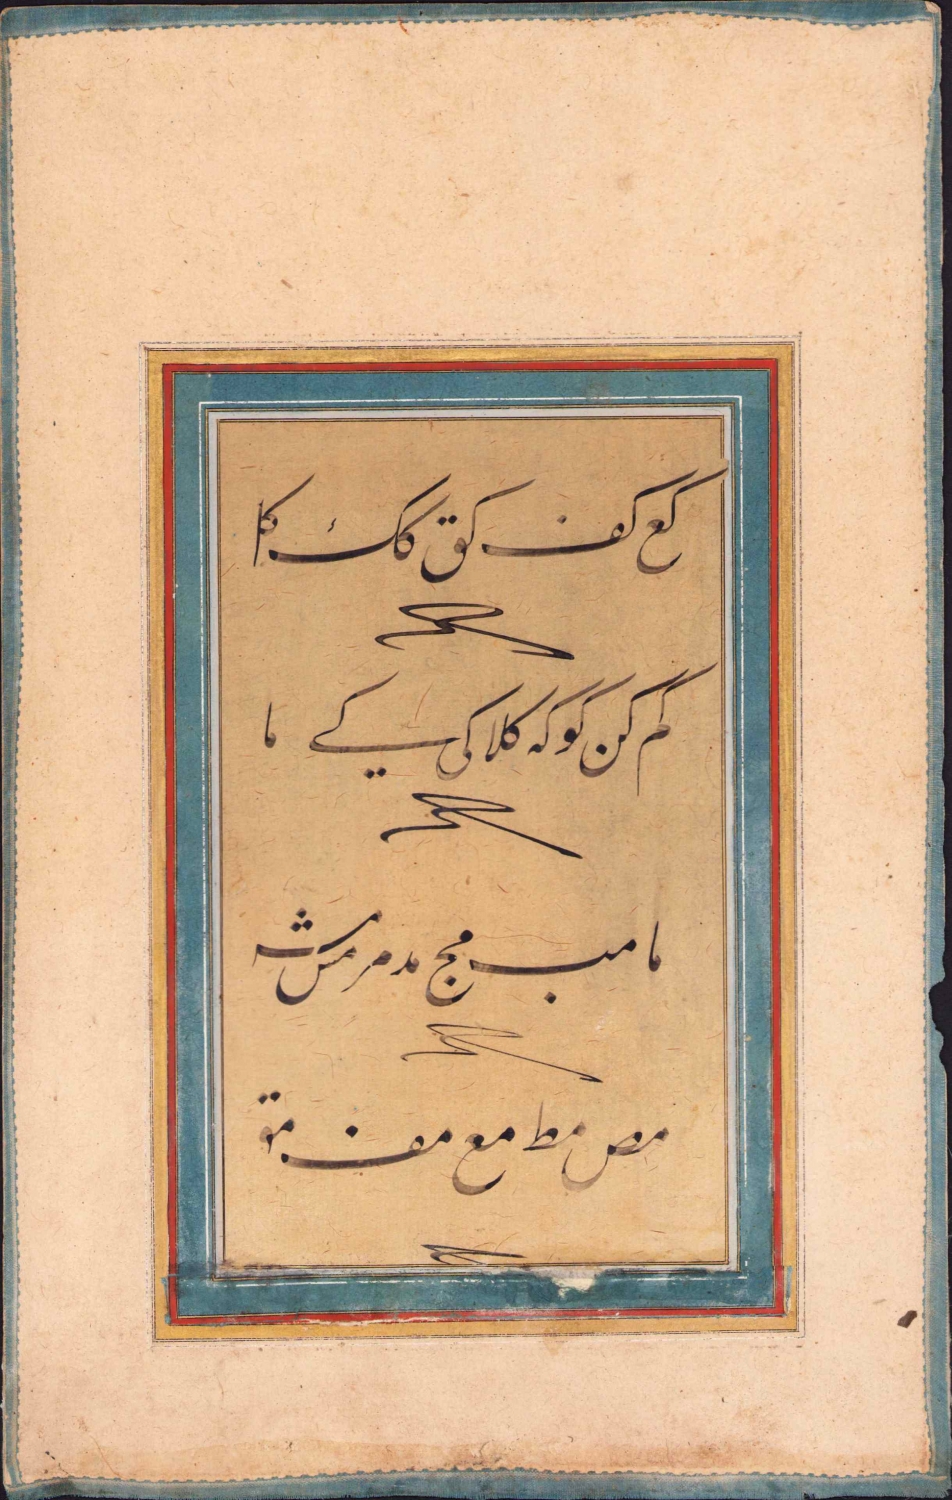 کع کف کق کک کل
کم کن کو که کلا کی کے ما
ما مب مج مد مر مس مش
مص مط مع مف مق